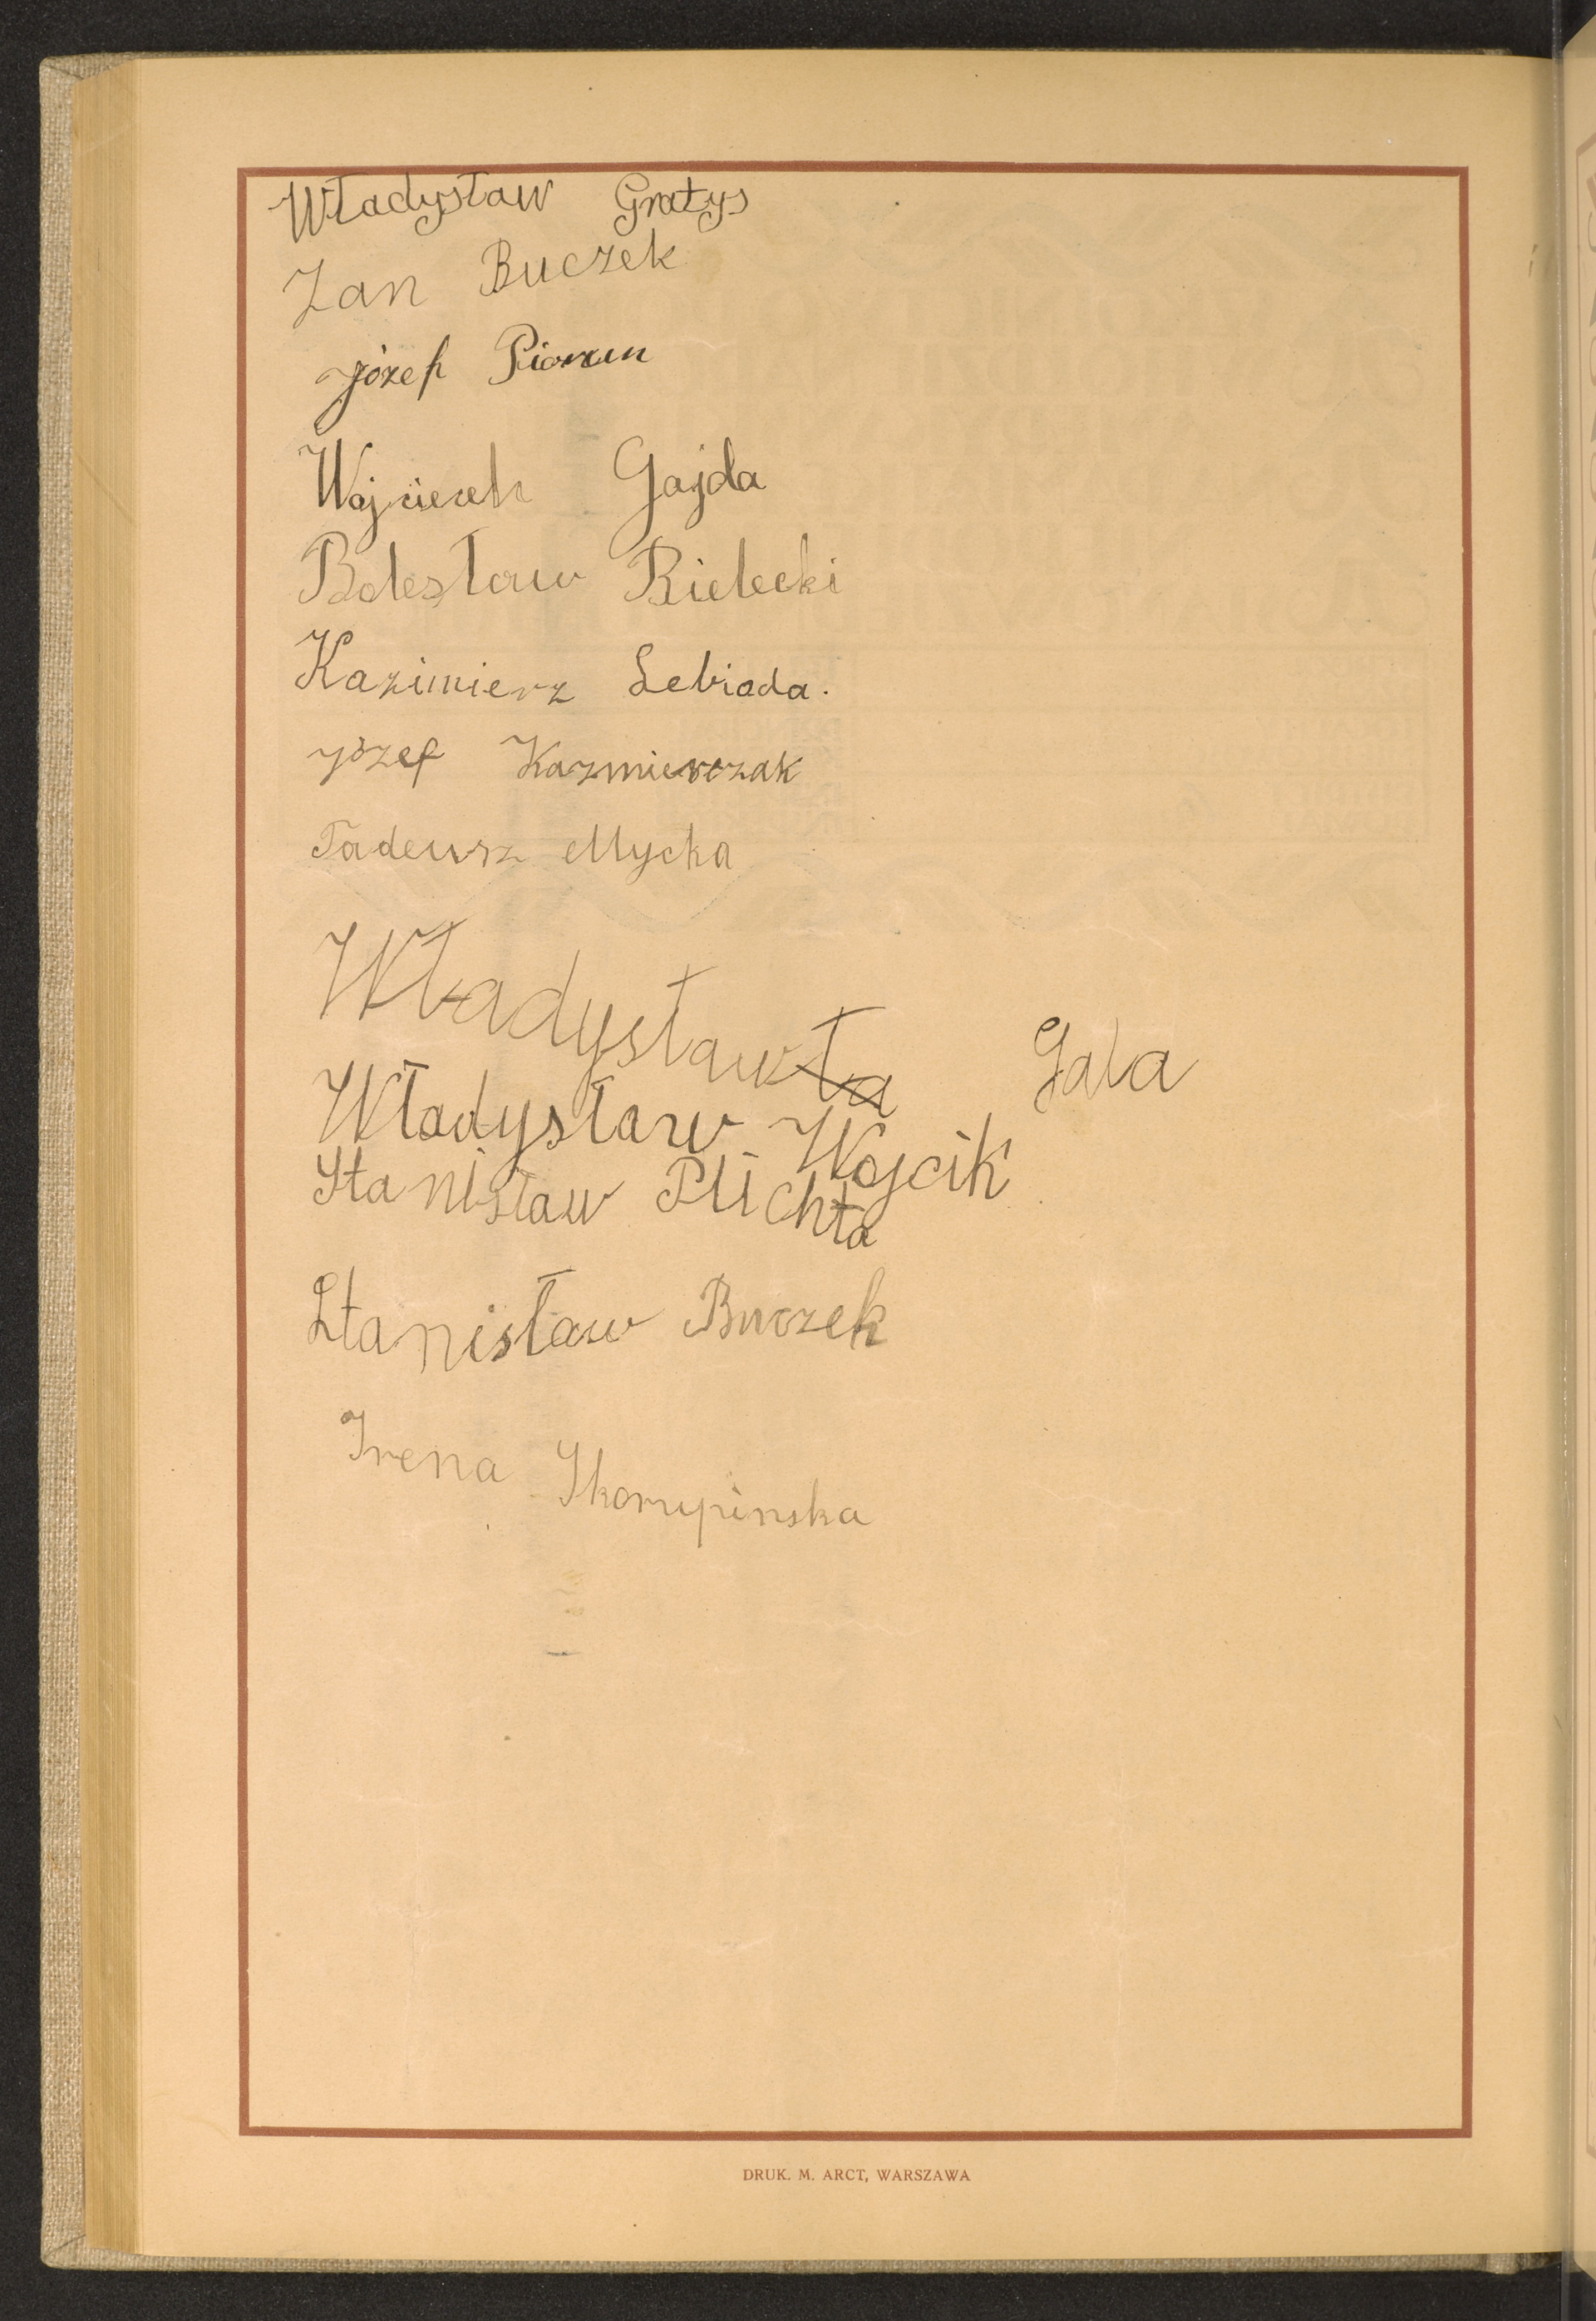 Władysław Gratys
Jan Buczek
Józef Piorun
Wojciech Gajda
Bolesław Bielecki
Kazimierz Lebioda.
Józef Kazmierczak
Tadeusz Mycka
Władysław Gala
Władysław Wojcik
Stanisław Plichta
Stanisław Buczek
Irena Skorupinska
DRUK. M. ARCT, WARSZAWA